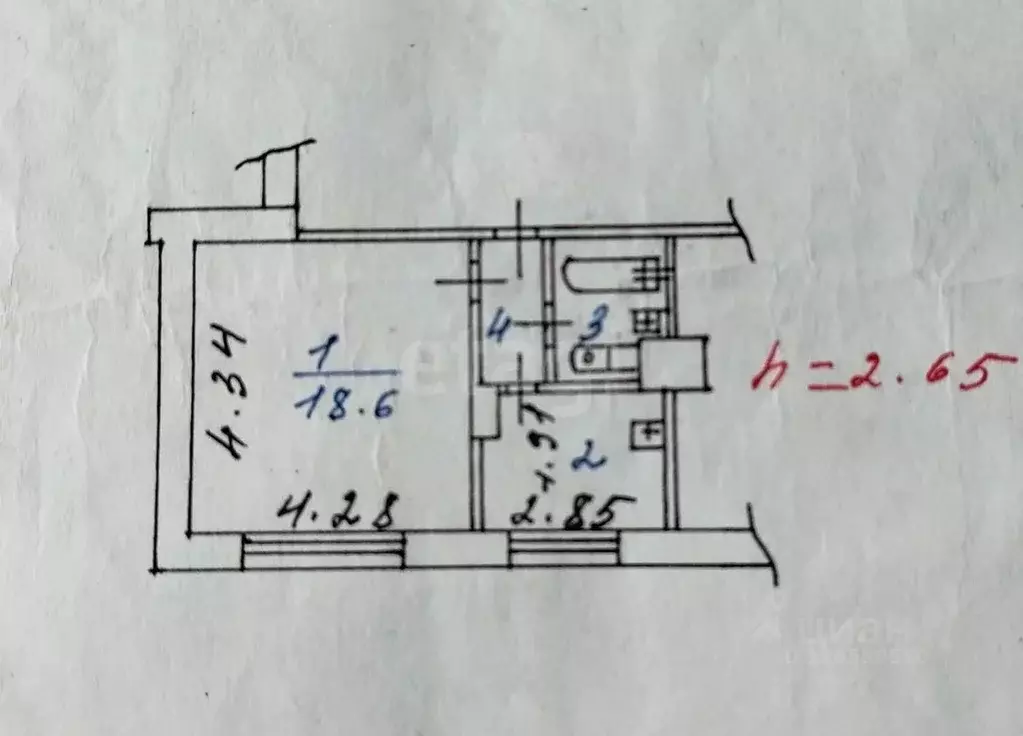 4.34
1
18.6
4.28
4
3
1.97
2
2.85
h=2.65
циан